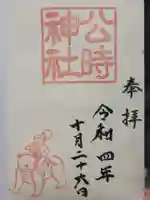 奉拝
公時
神社
令和四年
十月二十六日